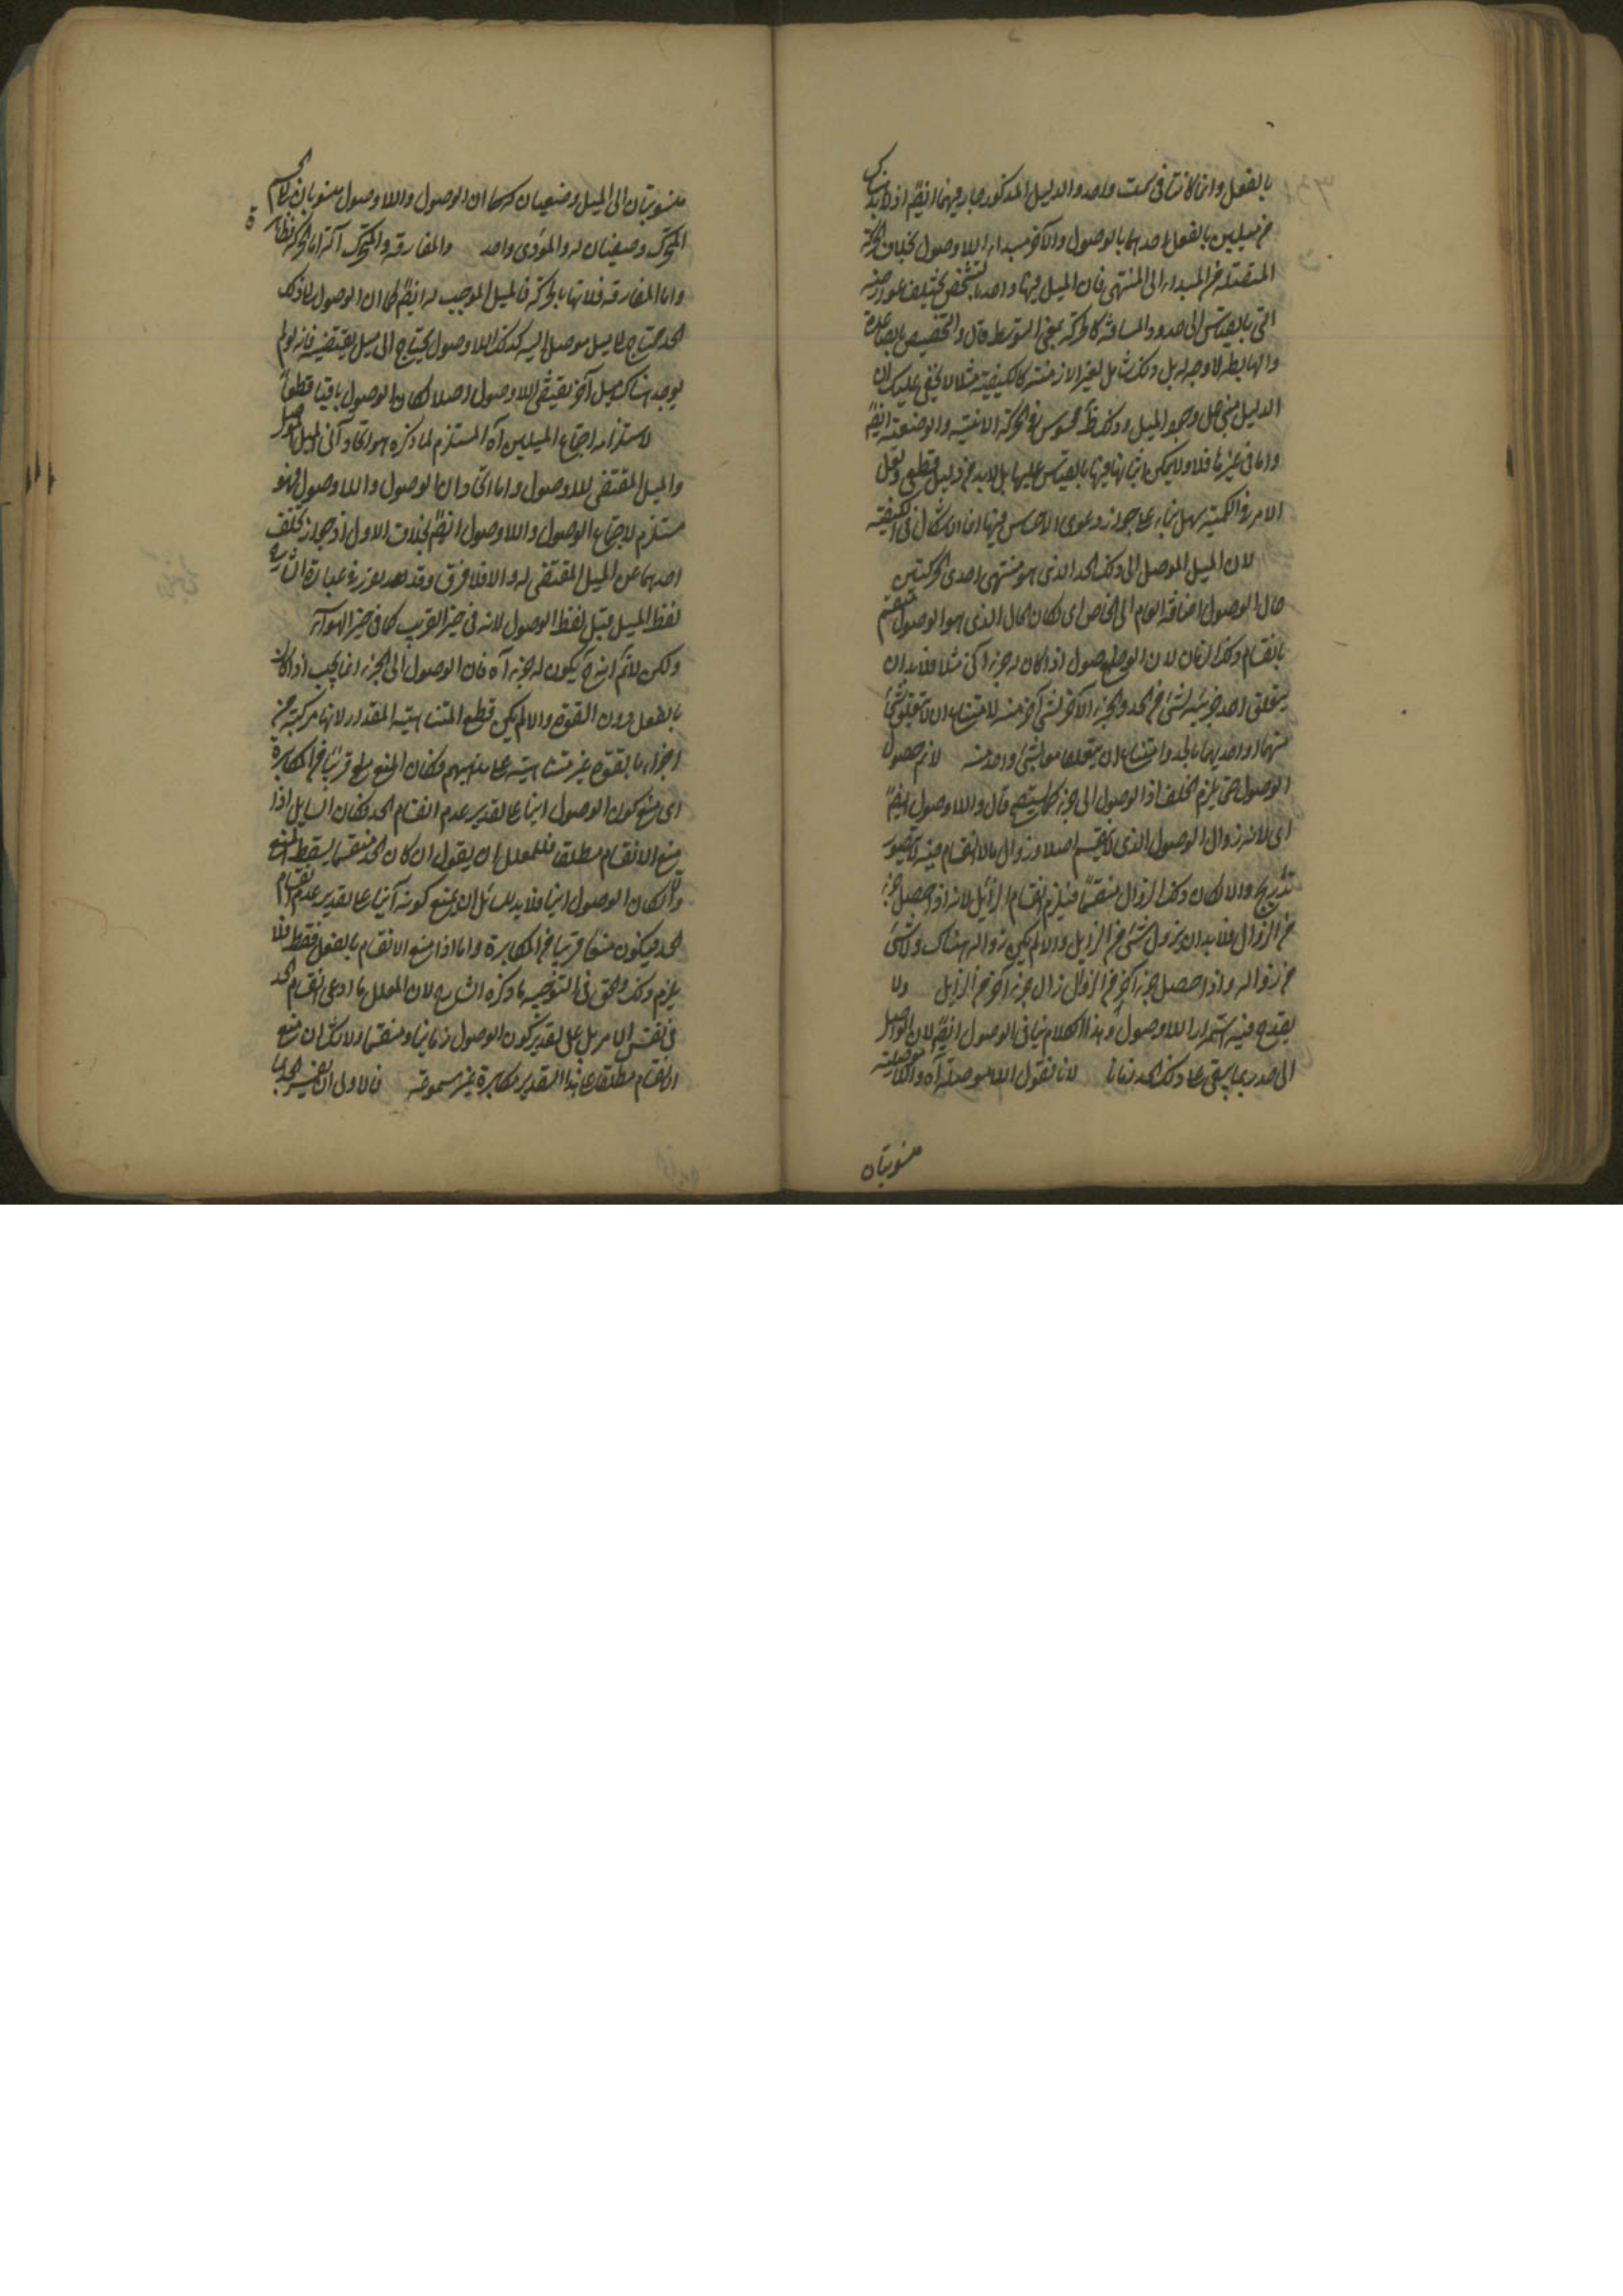 بالفعل وان كانتا فى سمت واحد والدليل المذكور جار فيهما ايضا اذ لا بد هناك
من ميلين بالفعل احدهما بالوصول والآخر مبداء اللاوصول بخلاف الحركة
المتصلة من المبداء الى المنتهى فان الميل فيها واحد بالشخص يختلف عوارضه
التى بالقياس الى حدود المسافة كالحركة بمعنى التوسط قال والتخصيص بالصاعدة
والهابطة لا وجه له بل ذلك شامل لغير الازمنة كالكيفية مثلا لا يخفى عليك ان
الدليل مبنى على وجود الميل وذلك ظ محسوس فى الحركة الاينية والوضعية ايضا
واما فى غيرها فلا ولا يمكن اثباتها فيها بالقياس عليها بل لابد من دليل قطعى ولعل
الامر فى الكمية سهل بناء على جواز دعوى الاحساس فيها انما الاشكال فى الكيفية
لان الميل الموصل الى ذلك الحد الذى هو منتهى احدى الحركتين
حال الوصول اضافة العام الى الخاص اى لكان الحال الذى هو الوصول منقسم
بانقسام ذلك الزمان لان الوصول اذا كان له جزء اخر مثلا فلابد ان
يتعلق احد جزئيه لشئ من الحد والجزء الآخر لشئ آخر منه لامتناع ان لا يتعلق شئ
منهما او احديهما بالحد وامتناع ان يتعلقا معا بشئ واحد منه لا نم حصول
الوصول حتى يلزم الخلف اذ الوصول الى جزء قال واللاوصول ايضا
اى لانه زوال الوصول الذى لا ينقسم اصلا وزوال مالا انقسام فيه لا يتصور
تدريجا والا لكان ذلك الزوال منقسما فيلزم انقسام الزائل لانه اذا حصل جزء
من الزوال فلابد ان يزول شئ من الزايل والا لم يكن زواله هناك ولا شئ
من زواله واذا حصل جزء آخر من الزوال زال جزء آخر من الزايل ولا
يقدح فيه استمرار اللاوصول وهذا الكلام ينافى الوصول ايضا لان الواصل
الى حد ربما يبقى على ذلك الحد زمانا لانا نقول اللاموصلية آه واللاموصلية
منسوبتان
منسوبتان الى الميل وصفتان كما ان الوصول واللاوصول منسوبان الى الجسم
المتحرك وصفتان له والمؤدى واحد والمفارقة والتحرك آنه اما الحركة فظاهرة
واما المفارقة فلانها بالحركة فالميل الموجب له ايضا كما ان الوصول الى ذلك
الحد محتاج الى ميل موصل اليه كذلك اللاوصول يحتاج الى ميل يقتضيه فانه لو لم
يوجد هناك ميل آخر يقتضى اللاوصول اصلا لكان الوصول باقيا قطعا
لاستلزامه اجتماع الميلين آه المستلزم لما ذكره هو اتحاد آنى الميل الموصل
والميل المقتضى للاوصول واما اتحاد ان الوصول واللاوصول فهو
مستلزم لاجتماع الوصول واللاوصول ايضا بخلاف الاول اذ جواز تخلف
احدهما عن الميل المقتضى له والا فلا فرق وقد يوجد فى عبارة الشارح
لفظ الميل قبل لفظ الوصول لانه فى حيز القريب كما فى حيز الهواء
ولكن لا نم انه ح يكون له جزء آه فان الوصول الى الجزء انما يجب اذا كان
بالفعل دون القوة والا لم يكن قطع المتناهية المقدار لانها مركبة من
اجزاء بالقوة غير متناهية على مذهبهم فكان المنع ح قريبا من المكابرة
اى منع كون الوصول انيا على تقدير عدم انقسام الحد فكان السايل اذا
منع الانقسام مطلقا فللمعلل ان يقول ان كان الحد منقسما يسقط المنع
والا لكان الوصول انيا فلابد للسائل ان يمنع كونه آنيا على تقدير عدم انقسام
الحد فيكون منعا قريبا من المكابرة واما اذا منع الانقسام بالفعل فقط فلا
يلزم ذلك والحق فى التوجيه ما ذكره الشارح لان المعلل ما ادعى انقسام الحد
فى نفس الامر بل على تقدير كون الوصول زمانيا ومنقسما ولا شك ان منع
الانقسام مطلقا على هذا التقدير مكابرة غير مسموعة فالاولى ان يفسر الحد بما